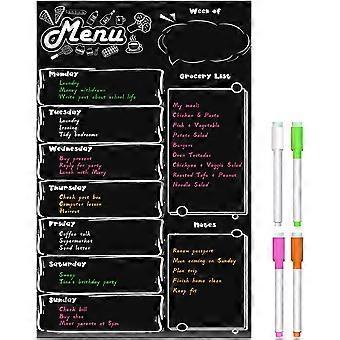 Menu
Week of
Monday
Laundry
Money withdrawn
Write post about school life
Tuesday
Laundry
Ironing
Tidy bedrooms
Wednesday
Buy present
Reply for party
Lunch with Mary
Thursday
Check post box
Computer lesson
Haircut
Friday
Coffee talk
Supermarket
Send letter
Saturday
Sweep
Tina's birthday party
Sunday
Check bill
Buy shoe
Meet parents at 5pm
Grocery List
My meals
Chicken & Pasta
Fish & Vegetable
Potato Salad
Burgers
Oven Tostadas
Chickpea & Veggie Salad
Roasted Tofu & Peanut
Noodle Salad
Notes
Renew passport
Mum coming on Sunday
Plan trip
Finish home clean
Keep fit